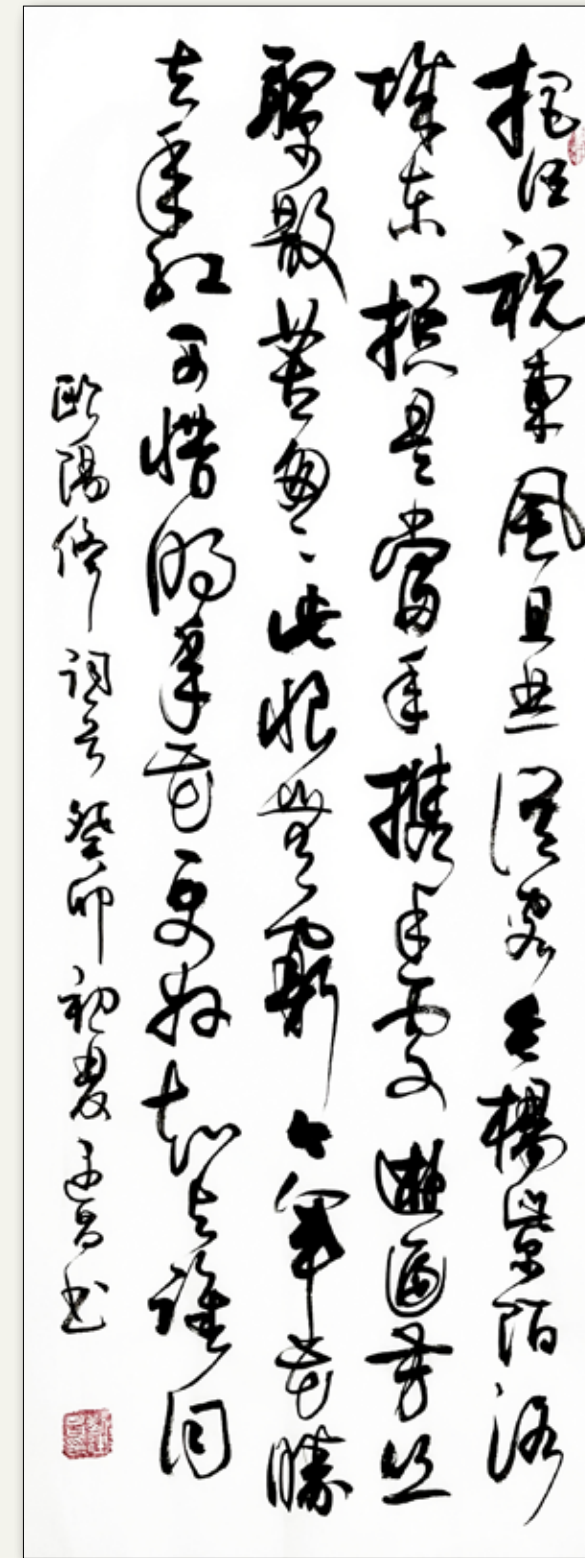 把酒祝東風且共從容垂楊紫陌洛
城東揔是當年攜手處遊遍芳叢
聚散苦匆〻此恨無窮今年花勝
去年紅可惜明年花更好知與誰同
歐陽修詞 癸卯初夏 書